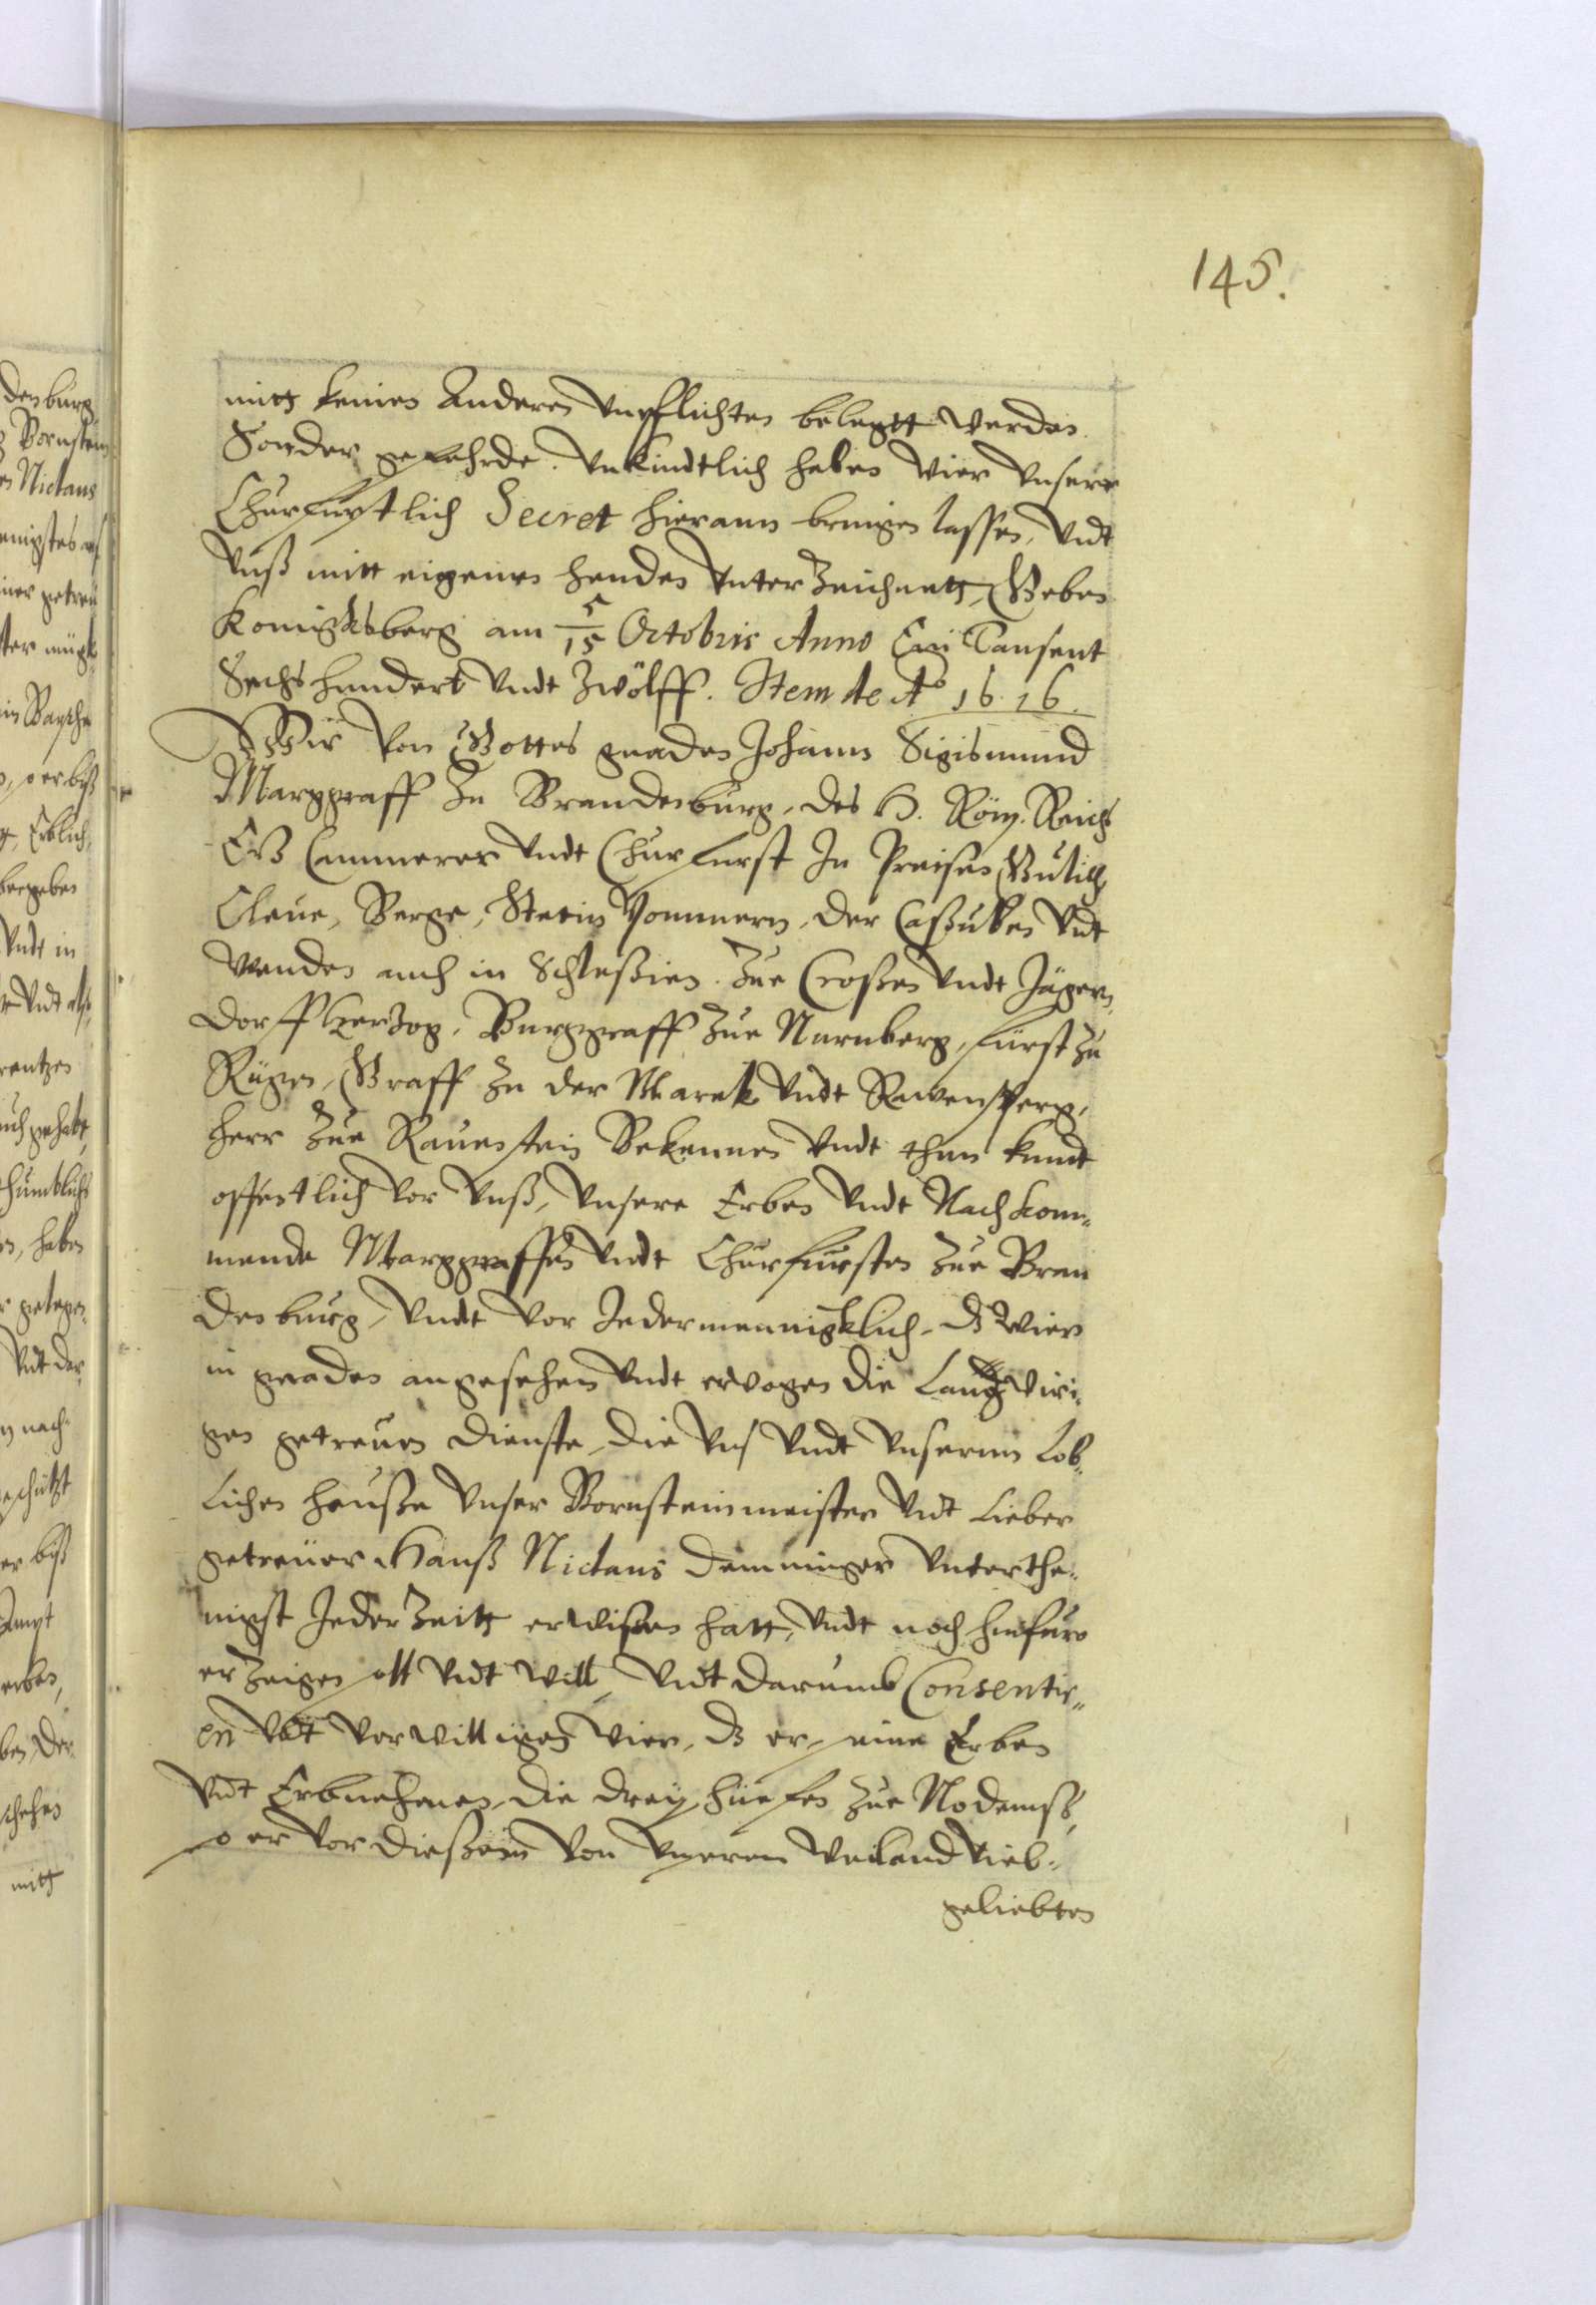 145.
mitt keinen Anderen Unpflichten belegtt werden
Sonder gefehrde. Urkundtlich haben wier unsere
Churfurstlich Secret hierann bringen lassen, undt
unß mitt eigenen henden unterzeichnett, Geben
Konigksberg am 5/15 Octobris Anno Ein Tausent
Sechshundert undt Zwölff. Item de Aº 1616.
Wir von Gottes gnaden Johann Sigismund
Marggraff Zu Brandenburg, des H. Röm. Reichs
Ertz Cammerer undt Churfurst In Preusen Gulich,
Cleue, Berge, Stetin Pommern, der Caßuben undt
Wenden auch in Schleßien. Zue Croßen undt Jägern„
dorff Hertzog, Burggraff Zue Nurnberg, Fürst zu
Rügen, Graff Zu der Marck undt Ravensberg,
Herr Zue Rauenstein Bekennen undt thun kundt
offentlich vor unß, unsere Erben undt Nachkom„
mende Marggraffen undt Churfursten Zue Bran
denburg, undt vor Jedermennigklich, dz wier
in gnaden angesehen undt erwogen die Langwiri„
gen getreuen dienste, die uns undt unserm Lob„
lichen hauße unser Bornsteinmeister undt Lieber
getreuer Hanß Niclaus Demminger unterthe„
nigst Jeder Zeitt erwisen hatt, undt noch hinfuro
erzeigen soll undt will, undt darumb Consentir„
en undt vorwilligen wier, dz er, seine Erben
undt Erbnehmen, die dreij huefen Zue Nodemß,
so er vor dießem von unserm weiland viel„
geliebten
denburg
Bornstein
Niclaus
undt in
gehatt,
haben
undt der
nach„
er biß
Ampt
erben,
mitt